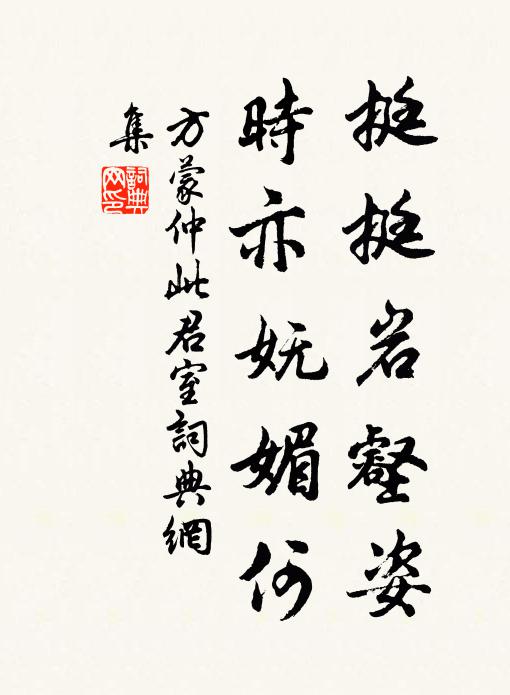 挺挺岩壑姿
時亦妩媚何
方蒙仲此君室詞典網
集
詞典
网印